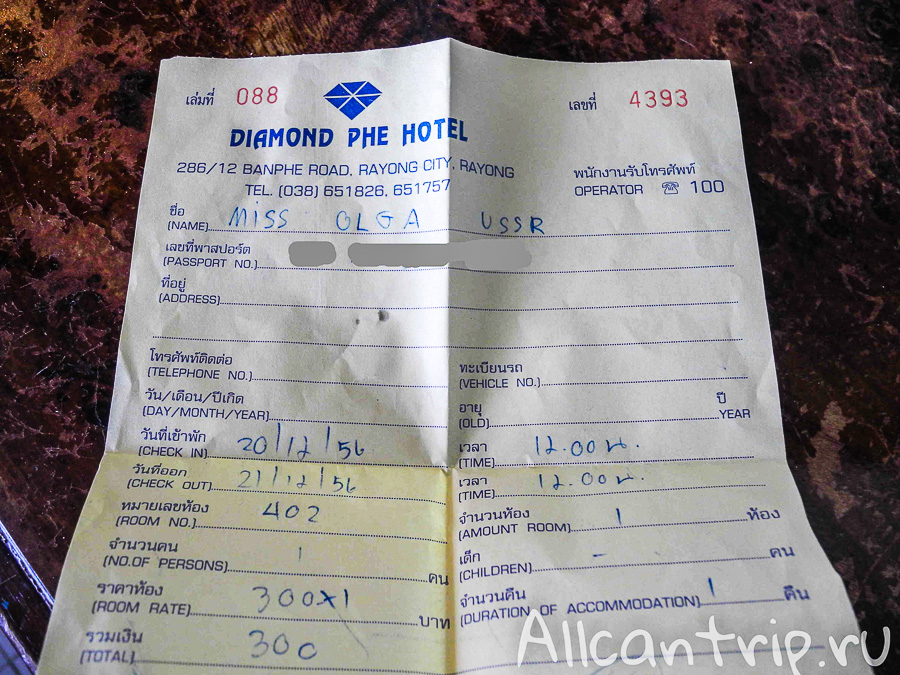 เล่มที่ 088 เลขที่ 4393
DIAMOND PHE HOTEL
286/12 BANPHE ROAD, RAYONG CITY, RAYONG
TEL. (038) 651826, 651757
พนักงานรับโทรศัพท์
OPERATOR ☏ 100
ชื่อ
(NAME) MISS OLGA USSR
เลขที่พาสปอร์ต
(PASSPORT NO.)
ที่อยู่
(ADDRESS)
โทรศัพท์ติดต่อ
(TELEPHONE NO.)
ทะเบียนรถ
(VEHICLE NO.)
วัน/เดือน/ปีเกิด
(DAY/MONTH/YEAR)
อายุ ปี
(OLD) YEAR
วันที่เข้าพัก
(CHECK IN) 20/12/56
เวลา
(TIME) 12.00 น.
วันที่ออก
(CHECK OUT) 21/12/56
เวลา
(TIME) 12.00 น.
หมายเลขห้อง
(ROOM NO.) 402
จำนวนห้อง
(AMOUNT ROOM) 1 ห้อง
จำนวนคน
(NO.OF PERSONS) 1 คน
เด็ก
(CHILDREN) - คน
ราคาห้อง
(ROOM RATE) 300x1 บาท
จำนวนคืน
(DURATION OF ACCOMMODATION) 1 คืน
รวมเงิน
(TOTAL) 300
Allcantrip.ru